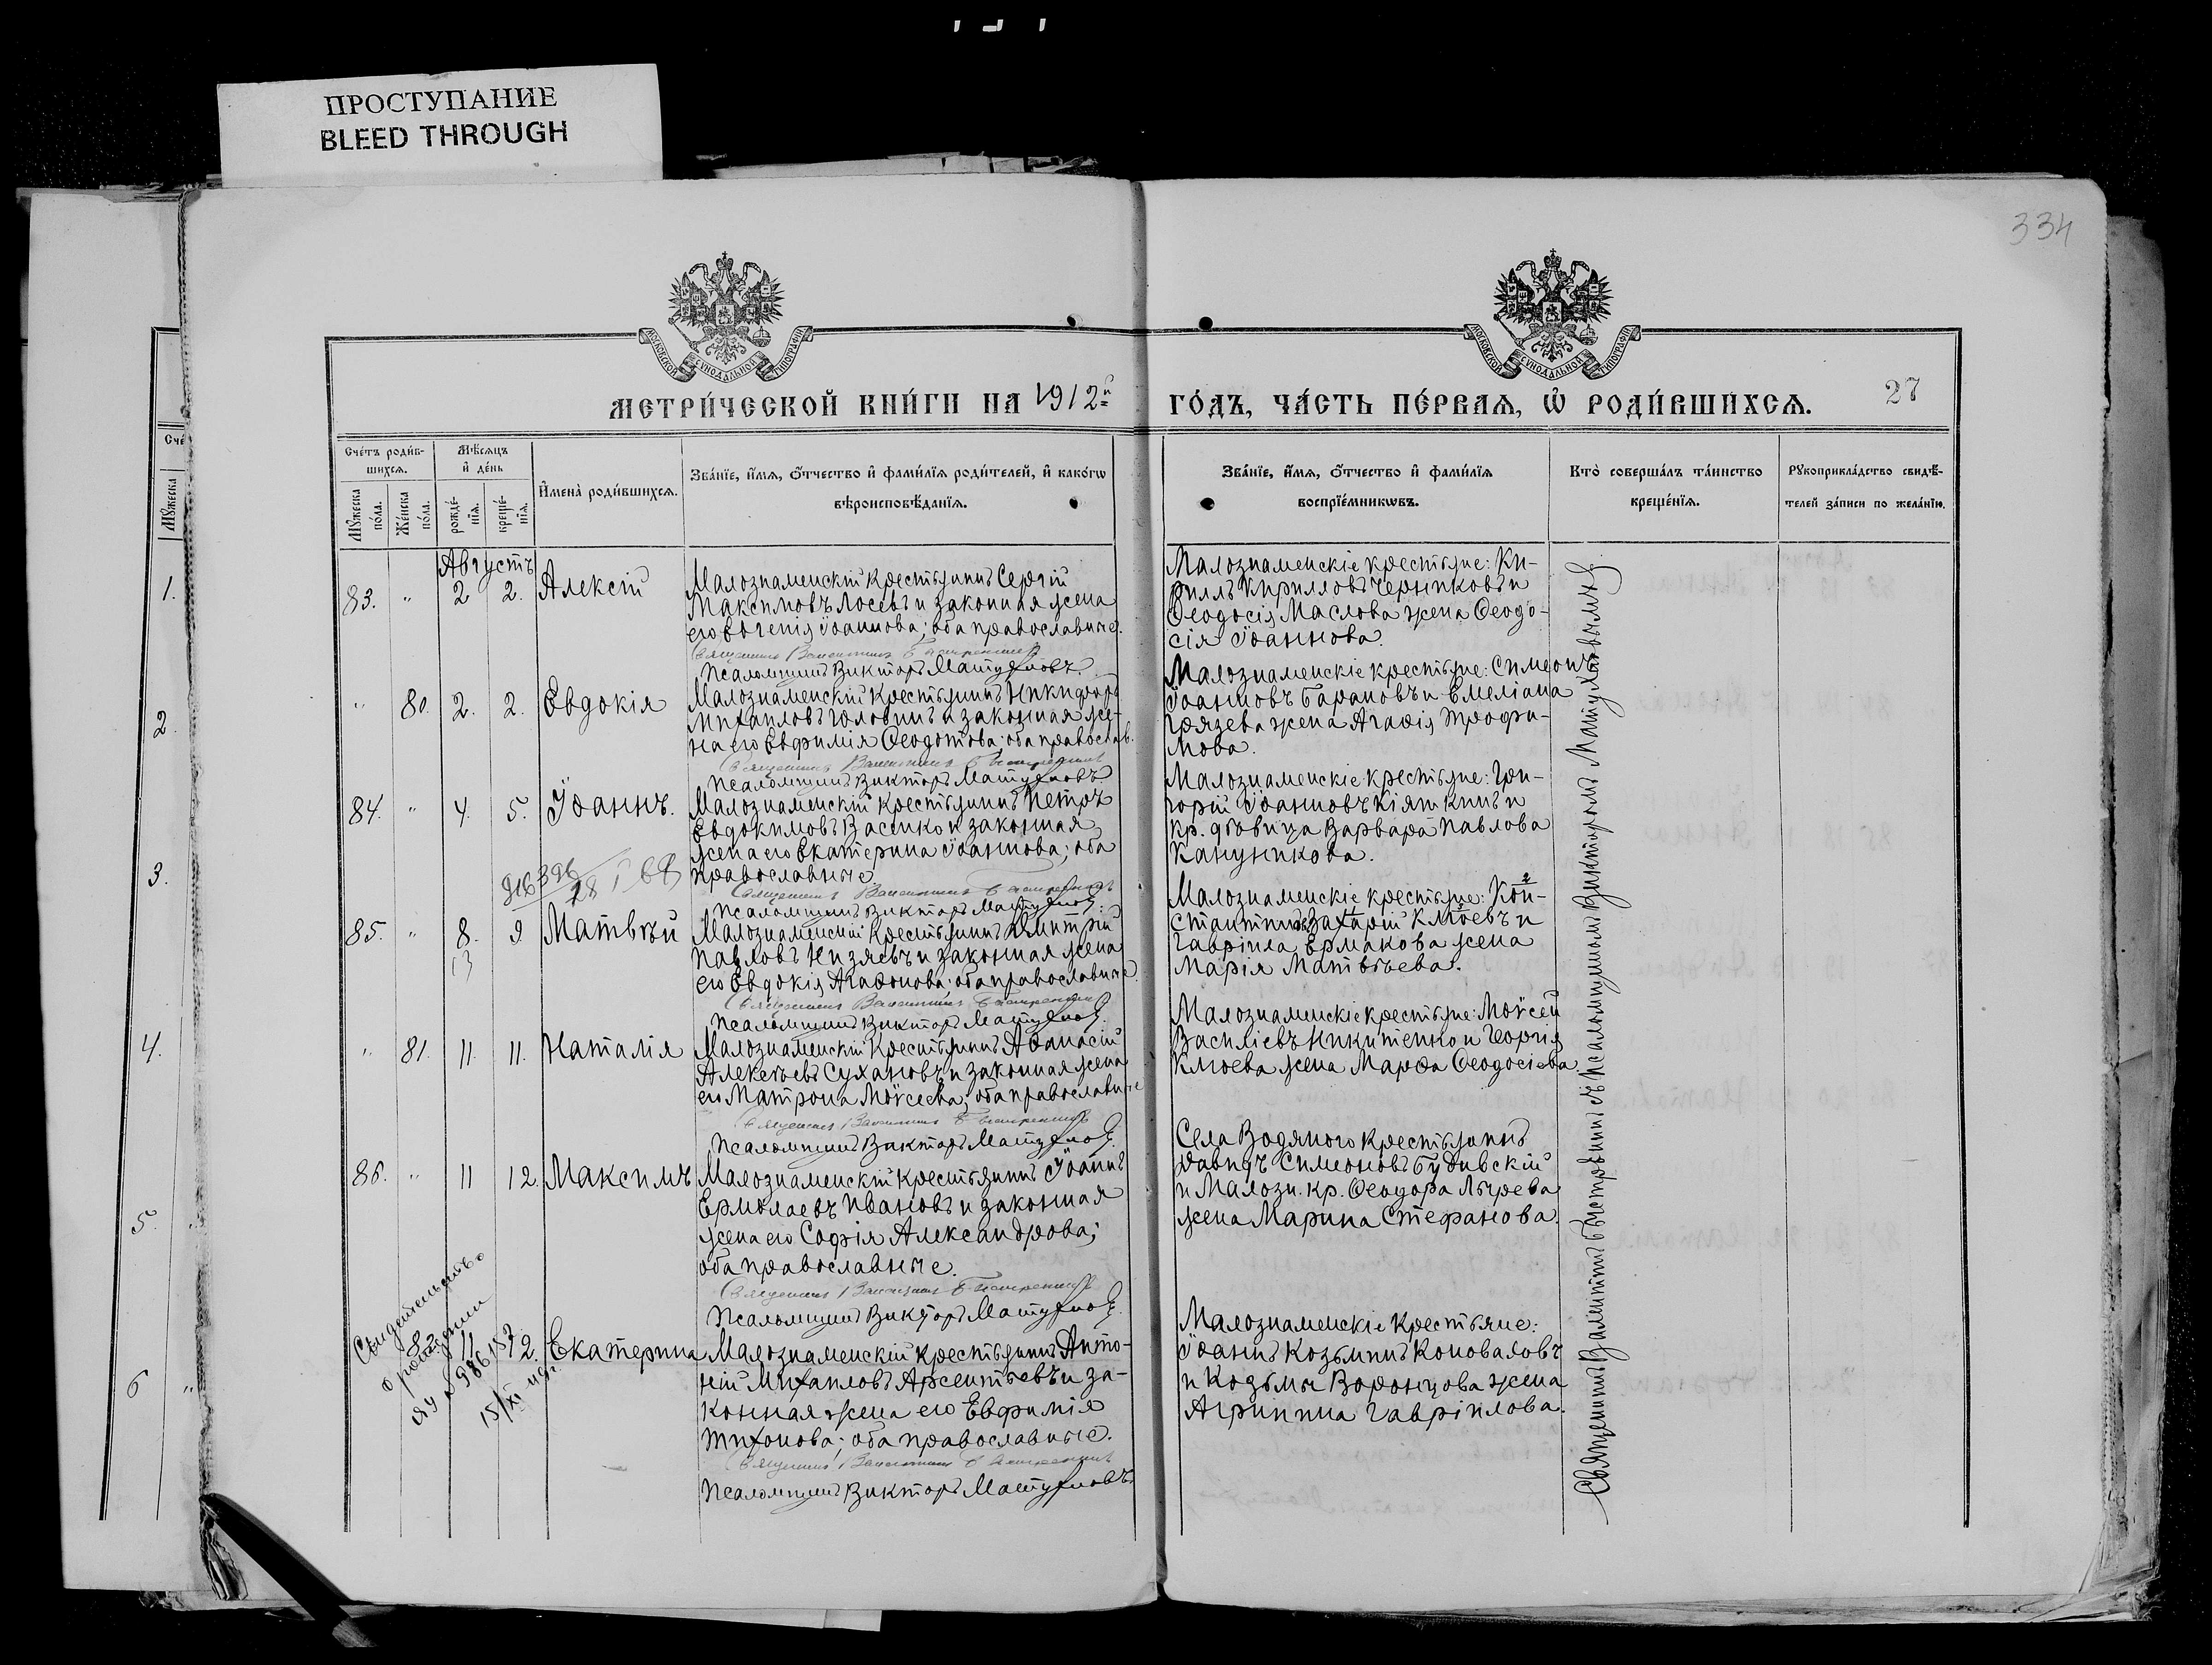 ПРОСТУПАНИЕ
BLEED THROUGH
334
МОСКОВСКОЙ СѴНОДАЛЬНОЙ ТИПОГРАФІИ
МОСКОВСКОЙ СѴНОДАЛЬНОЙ ТИПОГРАФІИ
МЕТРИ́ЧЕСКОЙ КНИ́ГИ НА 1912й ГО́ДЪ, ЧА́СТЬ ПЕ́РВАЯ, Ѽ РОДИ́ВШИХСЯ. 27
Сче́тъ роди́в-
шихся.
Мꙋ́жеска
по́ла.
Же́нска
по́ла.
Мѣ́сяцъ
и҆ де́нь
рожде́-
нїя.
креще́-
нїя.
И҆мена̀ роди́вшихся.
Зва́нїе, и҆́мя, ѻ҆́тчество и҆ фами́лїя роди́телей, и҆ како́гѡ
вѣроисповѣ́данїя.
Зва́нїе, и҆́мя, ѻ҆́тчество и҆ фами́лїя
воспрїе́мникѡвъ.
Кто̀ соверша́лъ та́инство
креще́нїя.
Рꙋкоприкла́дство свидѣ́-
телей за́писи по жела́нїю.
Августъ
83. " 2 2. Алексій
Малознаменскій крестьянинъ Сергій
Максимовъ Лосевъ и законная жена
его Іоаннова; оба православные.
Псаломщикъ Викторъ Матуляовъ
Малознаменскіе крестьяне: Ки-
риллъ Кирилловъ Черниковъ и
Ѳеодосія Маслова жена Ѳеодо-
сія Іоаннова.
" 80. 2. 2. Евдокія
Малознаменскій крестьянинъ Никифоръ
Михаиловъ Головинъ и законная же-
на его Евфимія Ѳеодотова; оба православ.
Псаломщикъ Викторъ
Малознаменскіе крестьяне: Симеонъ
Іоанновъ Барановъ и Емеліана
Грязева жена Агаѳія Трофи-
мова.
84. " 4. 5. Іоаннъ.
Малознаменскій крестьянинъ Петръ
Евдокимовъ Васико и законная
жена его Екатерина Іоаннова; оба
православные
Псаломщикъ Викторъ
Малознаменскіе крестьяне: Гри-
горій Іоанновъ Кіяткинъ и
кр. дѣвица Варвара Павлова
Канунникова.
85. " 8. 9 Матвѣй
13
Малознаменскій крестьянинъ Димитрій
Павловъ Низяевъ и законная жена
его Евдокія Агаѳонова; оба православные
Псаломщикъ Викторъ
Малознаменскіе крестьяне: Кон-
стантинъ Захарій Клюевъ и
Гавріила Ермакова жена
Марія Матвѣева.
" 81. 11. 11. Наталія
Малознаменскій крестьянинъ Аѳанасій
Алексѣевъ Сухановъ и законная жена
его Матрона Моѵсеева; оба православные
Псаломщикъ Викторъ
Малознаменскіе крестьяне: Моѵсей
Василіевъ Никитенко и Георгія
Клюева жена Марѳа Ѳеодосіева.
86. " 11 12. Максимъ
Малознаменскій крестьянинъ Іоаннъ
Ермолаевъ Ивановъ и законная
жена его Софія Александрова;
оба православные.
Псаломщикъ Викторъ
Села Водяного крестьянинъ
Давидъ Симеоновъ Будивскій
и Малозн. кр. Ѳеодора Лырева
жена Марина Стефанова.
Свидетельство
о рождении
82. 11 12. Екатерина
Малознаменскій крестьянинъ Анто-
ній Михаиловъ Арсентьевъ и за-
конная жена его Евфимія
Тихонова; оба православные.
Псаломщикъ Викторъ
Малознаменскіе крестьяне:
Іоаннъ Козьминъ Коноваловъ
и Козьмы Воронцова жена
Агрипина Гавріилова.
Священникъ Валентинъ Быстровинъ съ псаломщикомъ Викторомъ
1.
2.
3.
4.
5.
6 "